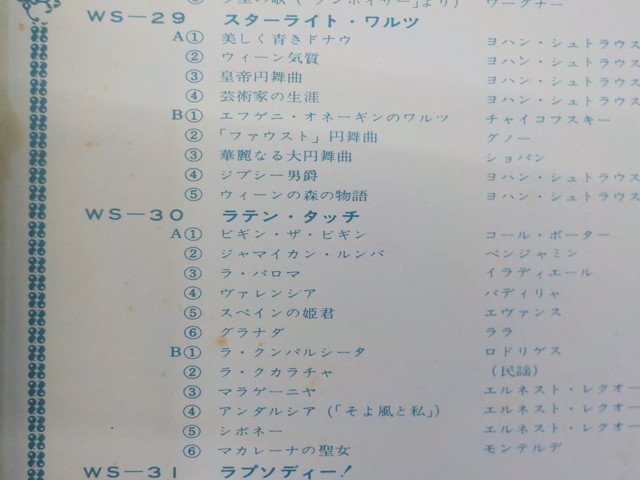 夕星の歌(「タンホイザー」より) ワーグナー
WS-29 スターライト・ワルツ
A① 美しく青きドナウ ヨハン・シュトラウス
② ウィーン気質 ヨハン・シュトラウス
③ 皇帝円舞曲 ヨハン・シュトラウス
④ 芸術家の生涯 ヨハン・シュトラウス
B① エフゲニ・オネーギンのワルツ チャイコフスキー
② 「ファウスト」円舞曲 グノー
③ 華麗なる大円舞曲 ショパン
④ ジプシー男爵 ヨハン・シュトラウス
⑤ ウィーンの森の物語 ヨハン・シュトラウス
WS-30 ラテン・タッチ
A① ビギン・ザ・ビギン コール・ポーター
② ジャマイカン・ルンバ ベンジャミン
③ ラ・パロマ イラディエール
④ ヴァレンシア パディリャ
⑤ スペインの姫君 エヴァンス
⑥ グラナダ ララ
B① ラ・クンパルシータ ロドリゲス
② ラ・クカラチャ (民謡)
③ マラゲーニヤ エルネスト・レクオー
④ アンダルシア(「そよ風と私」) エルネスト・レクオー
⑤ シボネー エルネスト・レクオー
⑥ マカレーナの聖女 モンテルデ
WS-31 ラプソディー!